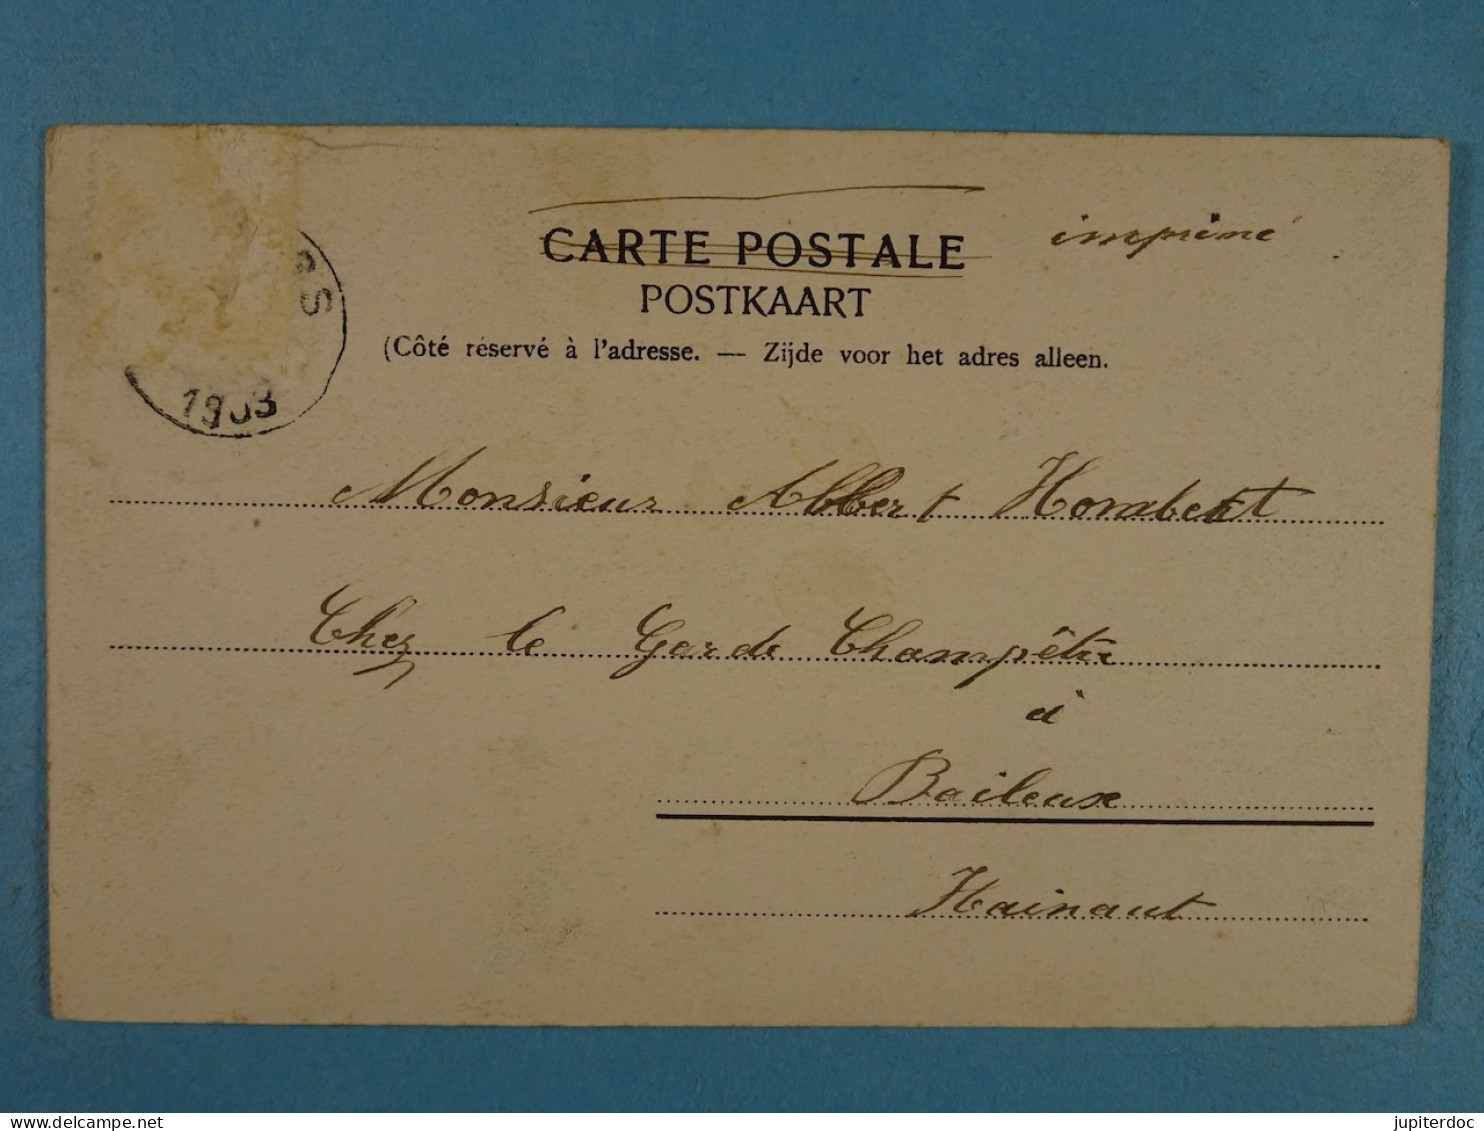 imprimé
CARTE POSTALE
POSTKAART
(Côté réservé à l'adresse. — Zijde voor het adres alleen.
1903
Monsieur Albert
Chez le Garde Champêtre
à
Baileux
Hainaut
jupiterdoc